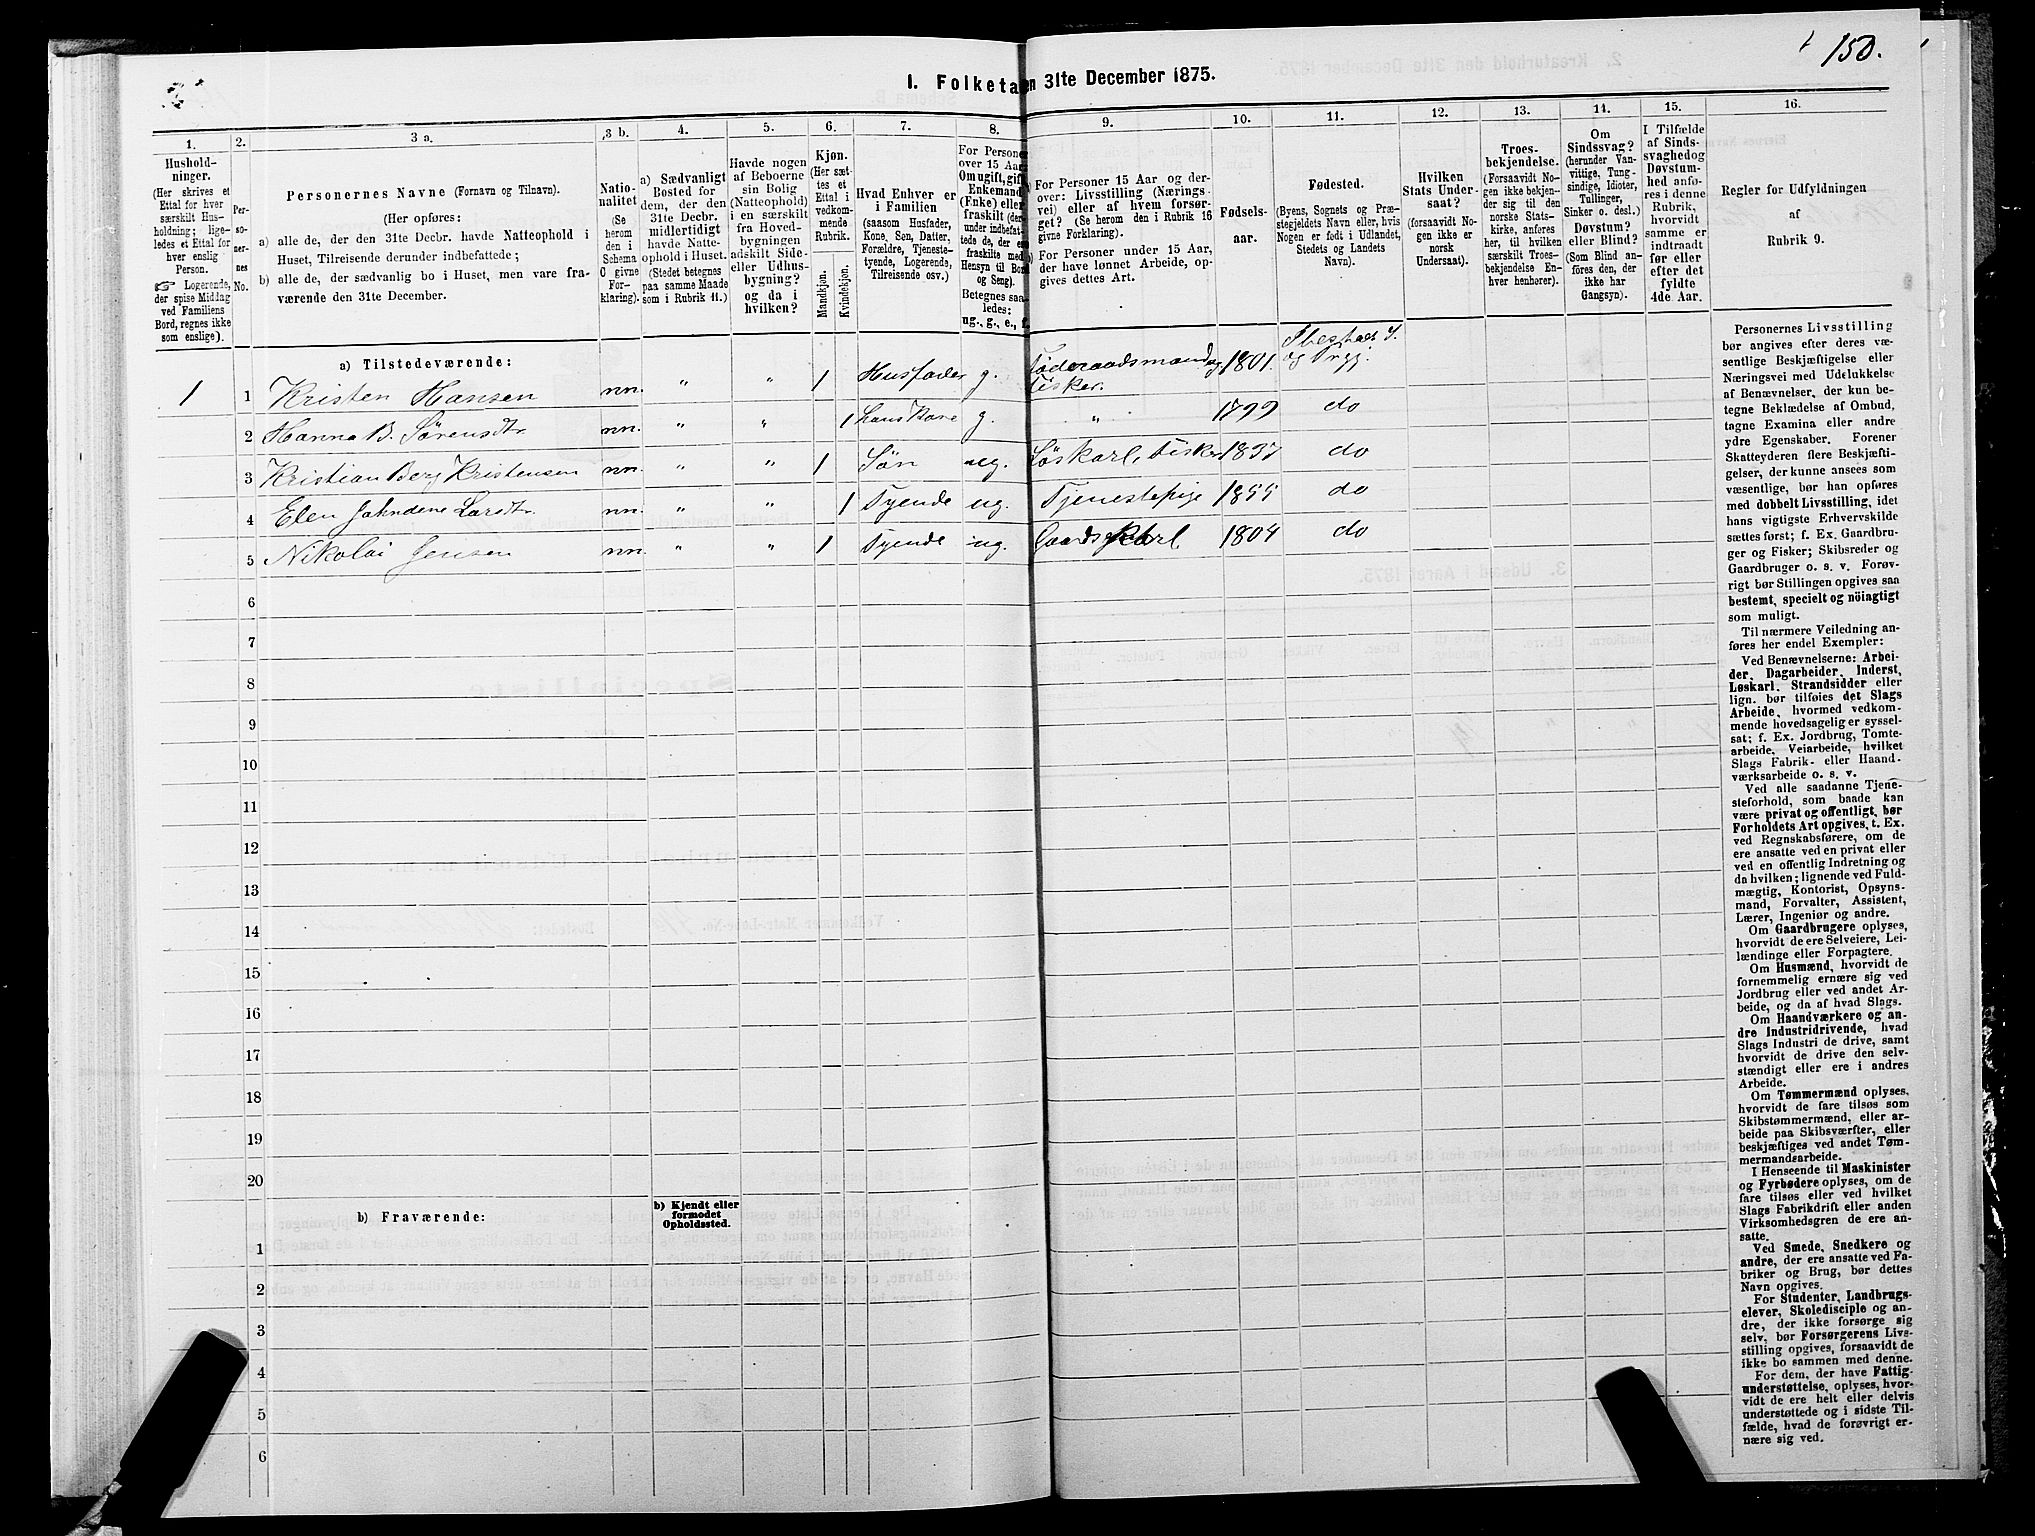 150.
I. Folketa en 31te December 1875.
1. 2. 3 a. 3 b. 4. 5. 6. 7. 8. 9. 10. 11. 12. 13. 14. 15. 16.
Hushold-
ninger.
(Her skrives et
Ettal for hver
særskilt Hus-
holdning; lige-
ledes et Ettal for
hver enslig
Person.
☞ Logerende,
der spise Middag
ved Familiens
Bord, regnes ikke
som enslige).
Per-
soner-
nes
No.
Personernes Navne (Fornavn og Tilnavn).
(Her opføres:
a) alle de, der den 31te Decbr. havde Natteophold i
Huset, Tilreisende derunder indbefattede;
b) alle de, der sædvanlig bo i Huset, men vare fra-
værende den 31te December.
Natio-
nalitet
(Se
herom
den i
Schema
C givne
For-
klaring).
a) Sædvanligt
Bosted for
dem, der den
31te Decbr.
midlertidigt
havde Natte-
ophold i Huset.
(Stedet betegnes
paa samme Maade
som i Rubrik 11.)
Havde nogen
af Beboerne
sin Bolig
(Natteophold)
i en særskilt
fra Hoved-
bygningen
adskilt Side-
eller Udhus-
bygning?
og da i
hvilken?
Kjøn.
(Her sæt-
tes et
Ettal i
vedkom-
mende
Rubrik.
Mandkjøn.
Kvindekjøn.
Hvad Enhver er
i Familien
(saasom Husfader,
Kone, Søn, Datter,
Forældre, Tjeneste-
tyende, Logerende,
Tilreisende osv.)
For Personer
over 15 Aar:
Om ugift, gift,
Enkemand
(Enke) eller
fraskilt (der-
under indbefat-
tede de, der ere
fraskilte med
Hensyn til Bord
og Seng).
Betegnes saa-
ledes:
ug., g., e., f.
a) For Personer 15 Aar og der-
over: Livsstilling (Nærings-
vei) eller af hvem forsør-
get? (Se herom den i Rubrik 16
givne Forklaring).
b) For Personer under 15 Aar,
der have lønnet Arbeide, op-
gives dettes Art.
Fødsels-
aar.
Fødested.
(Byens, Sognets og Præ-
stegjeldets Navn eller, hvis
Nogen er født i Udlandet,
Stedets og Landets
Navn).
Hvilken
Stats Under-
saat?
(forsaavidt No-
gen ikke er
norsk
Undersaat).
Troes-
bekjendelse.
(Forsaavidt No-
gen ikke bekjen-
der sig til den
norske Stats-
kirke, anføres
her, til hvilken
særskilt Troes-
bekjendelse En-
hver henhører).
Om
Sindssvag?
(herunder Van-
vittige, Tung-
sindige, Idioter,
Sinker o. desl.)
Døvstum?
eller Blind?
(Som Blind an-
føres den, der
ikke har
Gangsyn).
I Tilfælde
af Sinds-
svaghed og
Døvstum-
hed anfø-
res i denne
Rubrik,
hvorvidt
samme er
indtraadt
før eller
efter det
fyldte
4de Aar.
Regler for Udfyldningen
af
Rubrik 9.
a) Tilstedeværende:
1 1 Kristen Hansen nn. " " 1 Husfader g. Føderaadsmand og Fisker. 1801. Ibestad S. og Prgj.
2 Hanna B. Sørensdtr nn. " " 1 hans Kone g. " 1799 do
3 Kristian Berg Kristensen nn. " " 1 Søn ug. Løskarl, Fisker 1837 do
4 Elen Larsdtr. nn. " " 1 Tyende ug. Tjenestepige 1855 do
5 Nikolai Jensen nn. " " 1 Tyende ug. Gaardskarl 1804 do
6
7
8
9
10
11
12
13
14
15
16
17
18
19
20
b) Fraværende:
b) Kjendt eller
formodet
Opholdssted.
1
2
3
4
5
6
Personernes Livsstilling
bør angives efter deres væ-
sentlige Beskjæftigelse eller
Næringsvei med Udelukkelse
af Benævnelser, der kun be-
tegne Beklædelse af Ombud,
tagne Examina eller andre
ydre Egenskaber. Forener
Skatteyderen flere Beskjæfti-
gelser, der kunne ansees som
væsentlige, bør han opføres
med dobbelt Livsstilling, idet
hans vigtigste Erhvervskilde
sættes først; f. Ex. Gaardbru-
ger og Fisker; Skibsreder og
Gaardbruger o. s. v. Forøv-
rigt bør Stillingen opgives saa
bestemt, specielt og nöiagtigt
som muligt.
Til nærmere Veiledning an-
føres her endel Exempler:
Ved Benævnelserne: Arbei-
der, Dagarbeider, Inderst,
Løskarl, Strandsidder eller
lign. bør tilføies det Slags
Arbeide, hvormed vedkom-
mende hovedsagelig er syssel-
sat; f. Ex. Jordbrug, Tomte-
arbeide, Veiarbeide, hvilket
Slags Fabrik- eller Haand-
værksarbeide o. s. v.
Ved alle saadanne Tjene-
steforhold, som baade kan
være privat og offentligt, bør
Forholdets Art opgives, t. Ex.
ved Regnskabsførere, om de
ere ansatte ved en privat eller
ved en offentlig Indretning og
da hvilken; lignende ved Fuld-
mægtig, Kontorist, Opsyns-
mand, Forvalter, Assistent,
Lærer, Ingeniør og andre.
Om Gaardbrugere oplyses,
hvorvidt de ere Selveiere, Lei-
lændinge eller Forpagtere.
Om Husmænd, hvorvidt de
fornemmelig ernære sig ved
Jordbrug eller ved andet Ar-
beide, og da af hvad Slags.
Om Haandværkere og an-
dre Industridrivende, hvad
Slags Industri de drive, samt
hvorvidt de drive den selv-
stændigt eller ere i andres
Arbeide.
Om Tømmermænd oplyses,
hvorvidt de fare tilsøs som
Skibstømmermænd, eller ar-
beide paa Skibsværfter, eller
beskjæftiges ved andet Tøm-
mermandsarbeide.
I Henseende til Maskinister
og Fyrbødere oplyses, om de
fare tilsøs eller ved hvilket
Slags Fabrikdrift eller anden
Virksomhedsgren de ere an-
satte.
Ved Smede, Snedkere og
andre, der ere ansatte ved Fa-
briker og Brug, bør dettes
Navn opgives.
For Studenter, Landbrugs-
elever, Skoledisciple og an-
dre, der ikke forsørge sig
selv, bør Forsørgerens Livs-
stilling opgives, forsaavidt de
ikke bo sammen med denne.
For dem, der have Fattig-
understøttelse, oplyses, hvor-
vidt de ere helt eller delvis
understøttede og i sidste Til-
fælde, hvad de forøvrigt er-
nære sig ved.